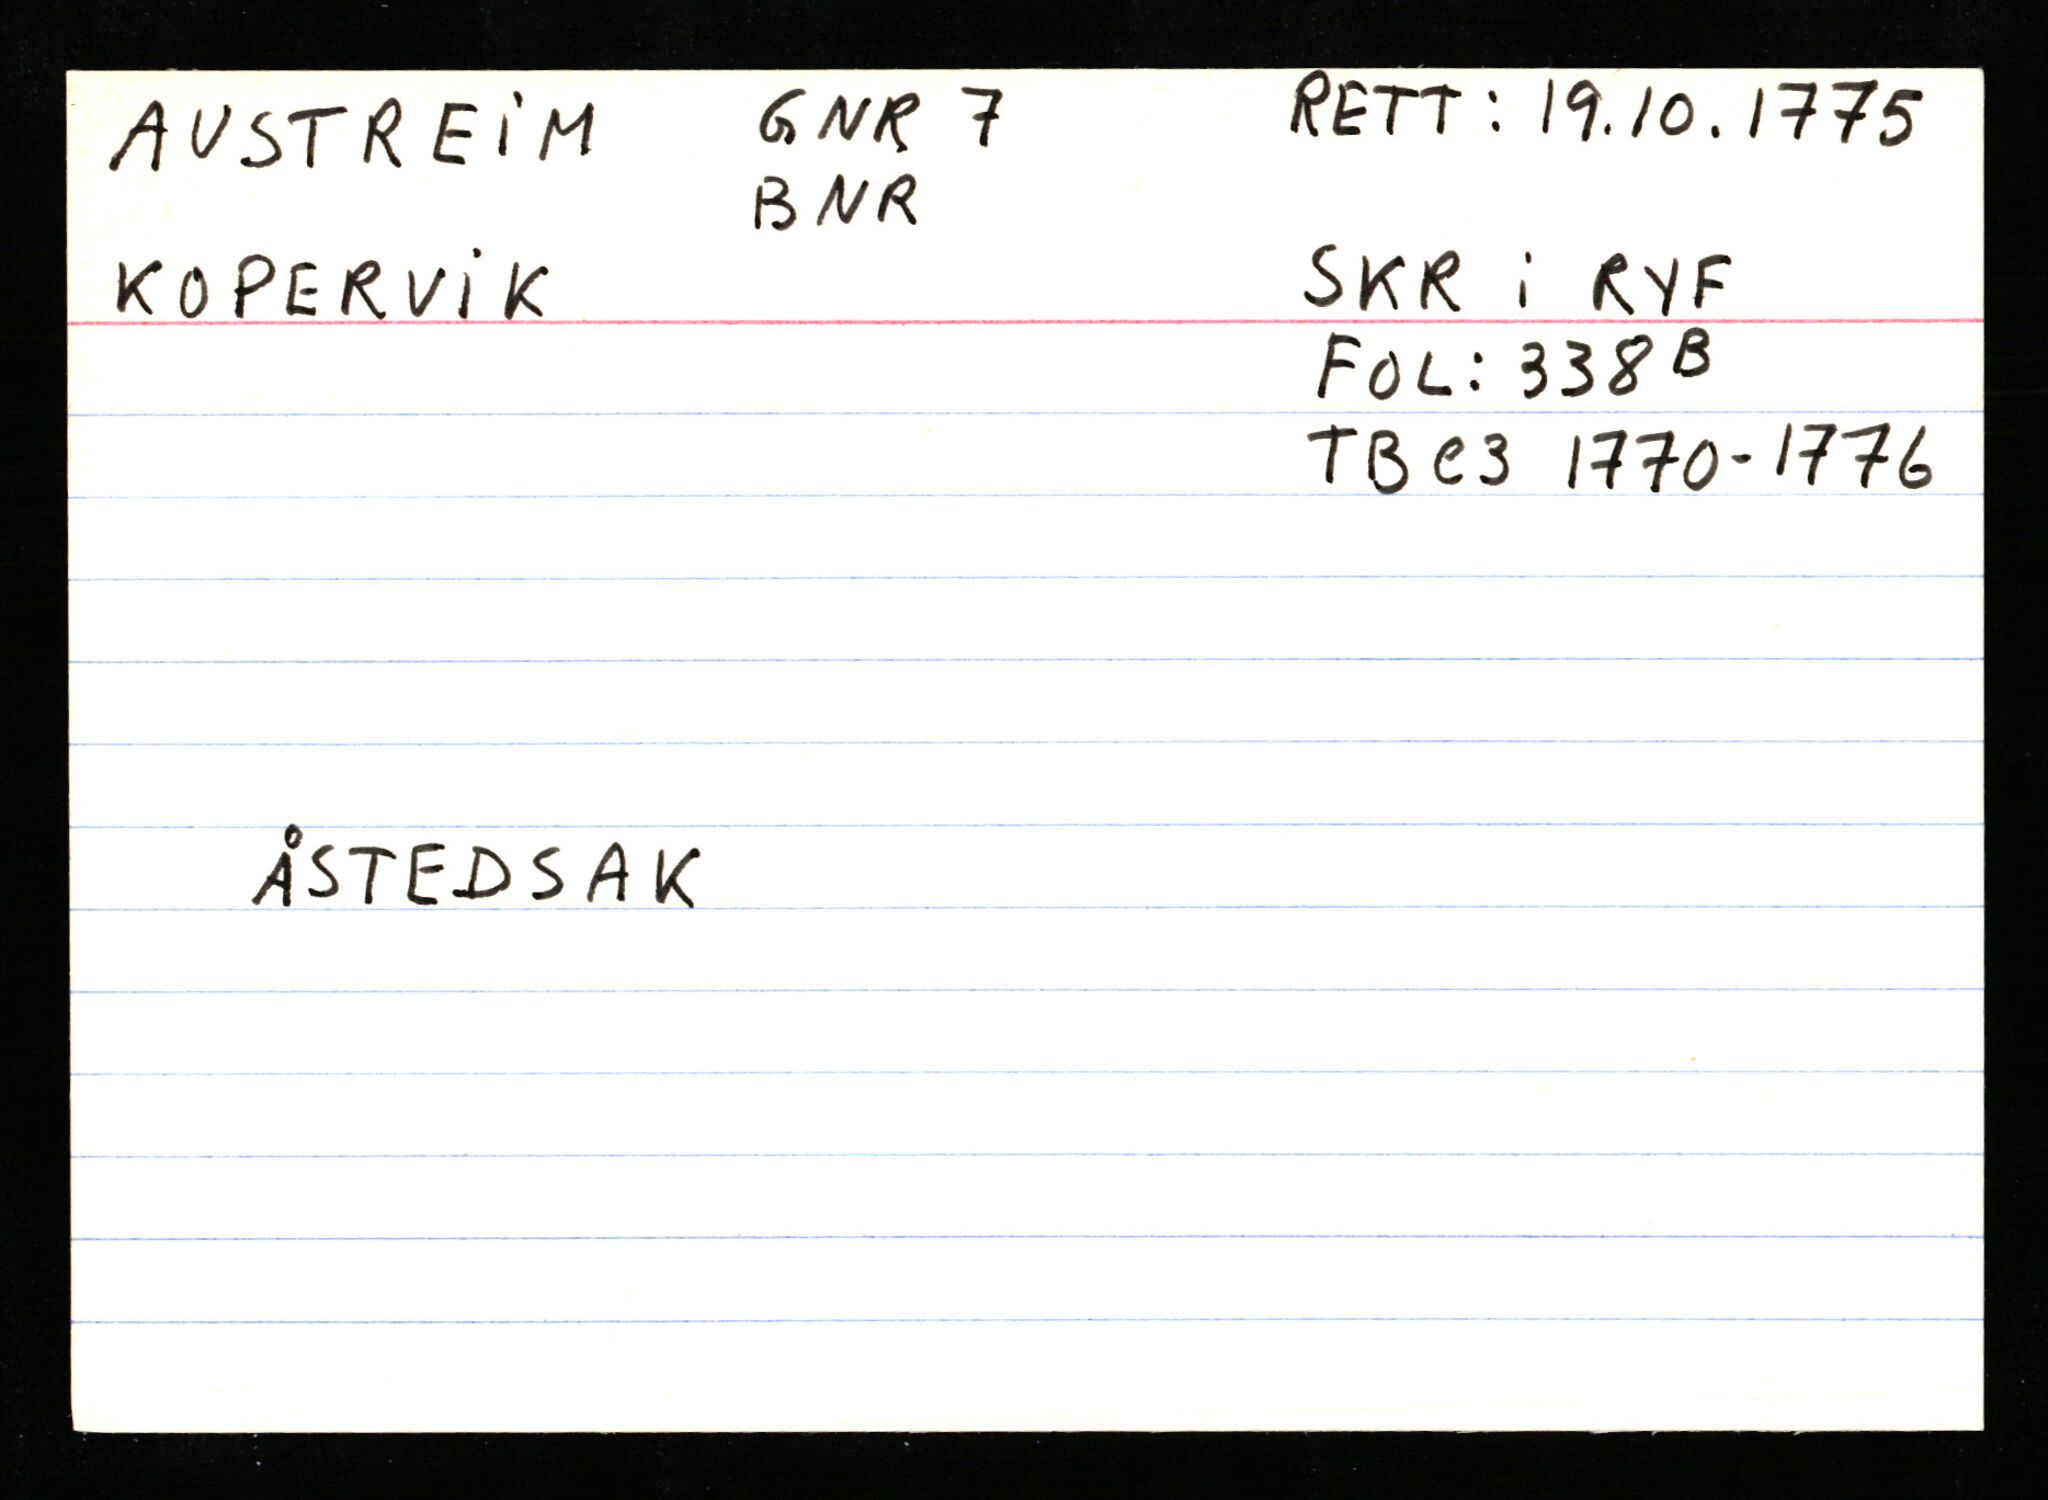 AUSTREIM GNR 7 RETT: 19.10.1775
BNR
KOPERVIK SKR i RYF
FOL: 338 B
TB e3 1770-1776
ÅSTEDSAK